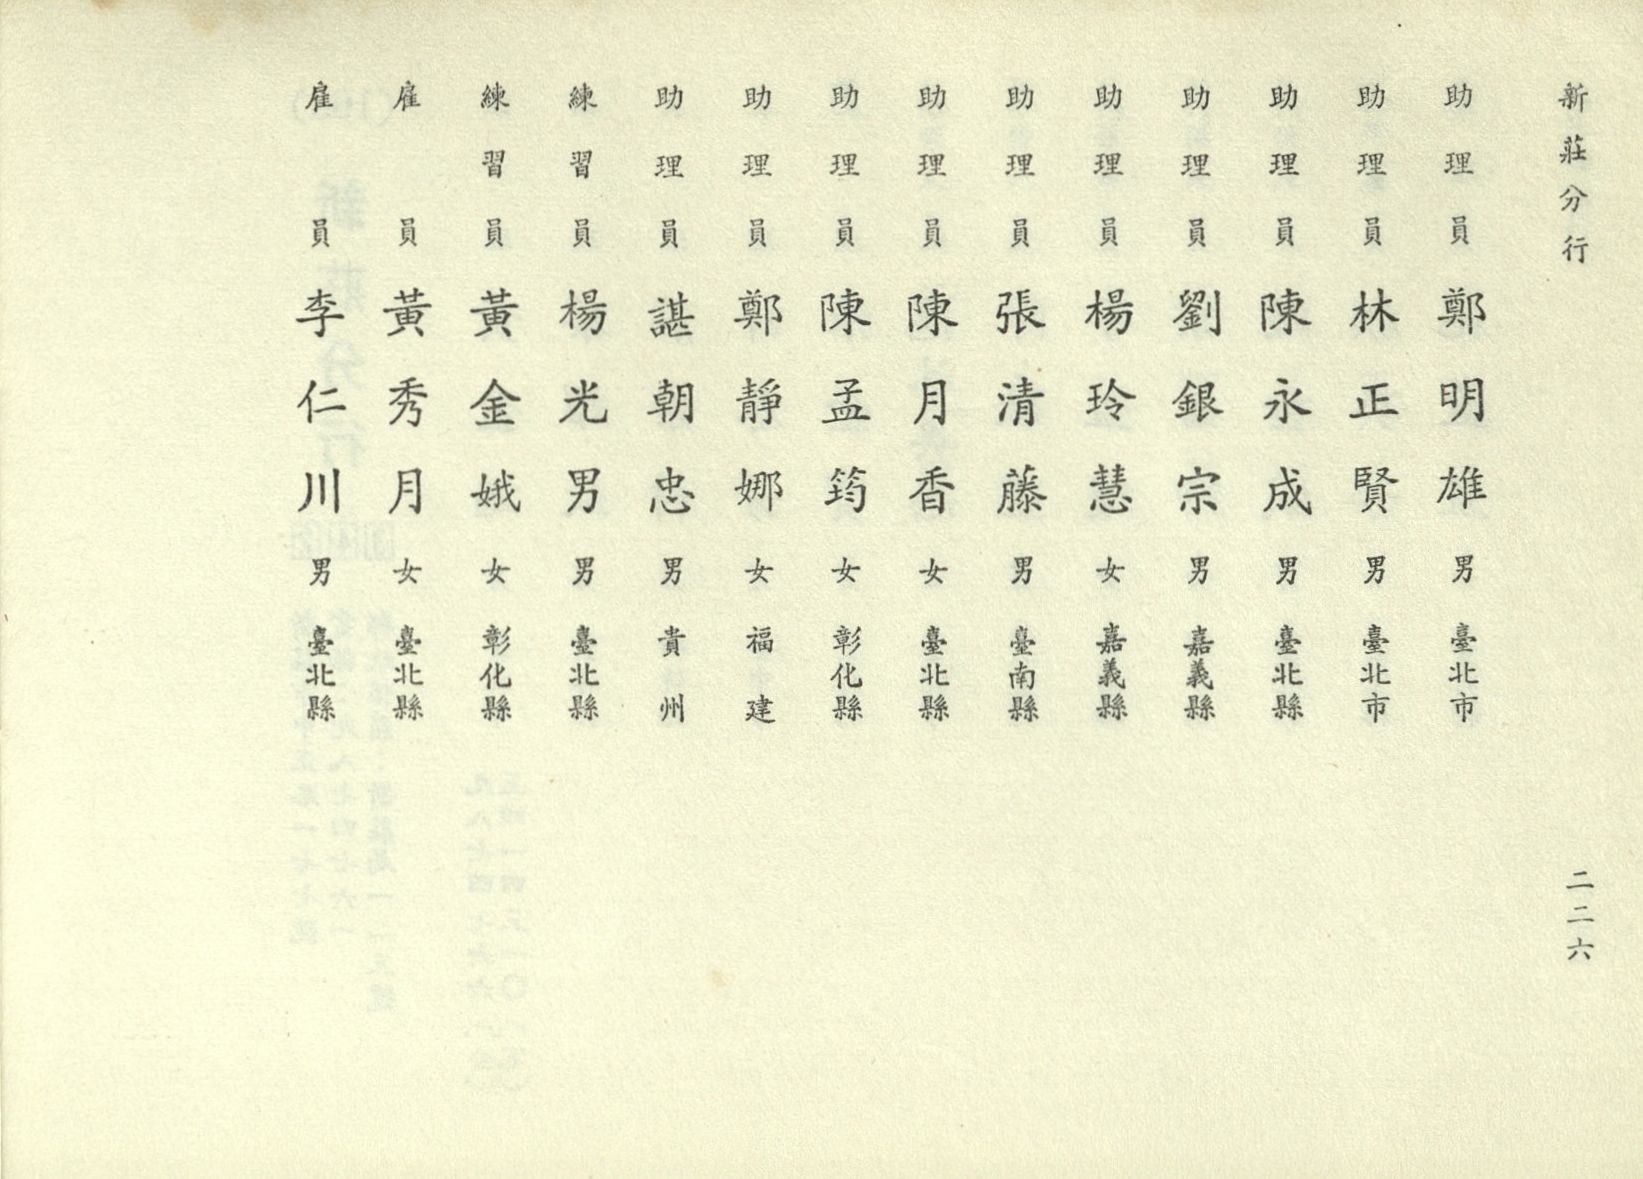 新莊分行
二二六
助理員 鄭明雄 男 臺北市
助理員 林正賢 男 臺北市
助理員 陳永成 男 臺北縣
助理員 劉銀宗 男 嘉義縣
助理員 楊玲慧 女 嘉義縣
助理員 張清藤 男 臺南縣
助理員 陳月香 女 臺北縣
助理員 陳孟筠 女 彰化縣
助理員 鄭靜娜 女 福建
助理員 諶朝忠 男 貴州
練習員 楊光男 男 臺北縣
練習員 黃金娥 女 彰化縣
雇員 黃秀月 女 臺北縣
雇員 李仁川 男 臺北縣